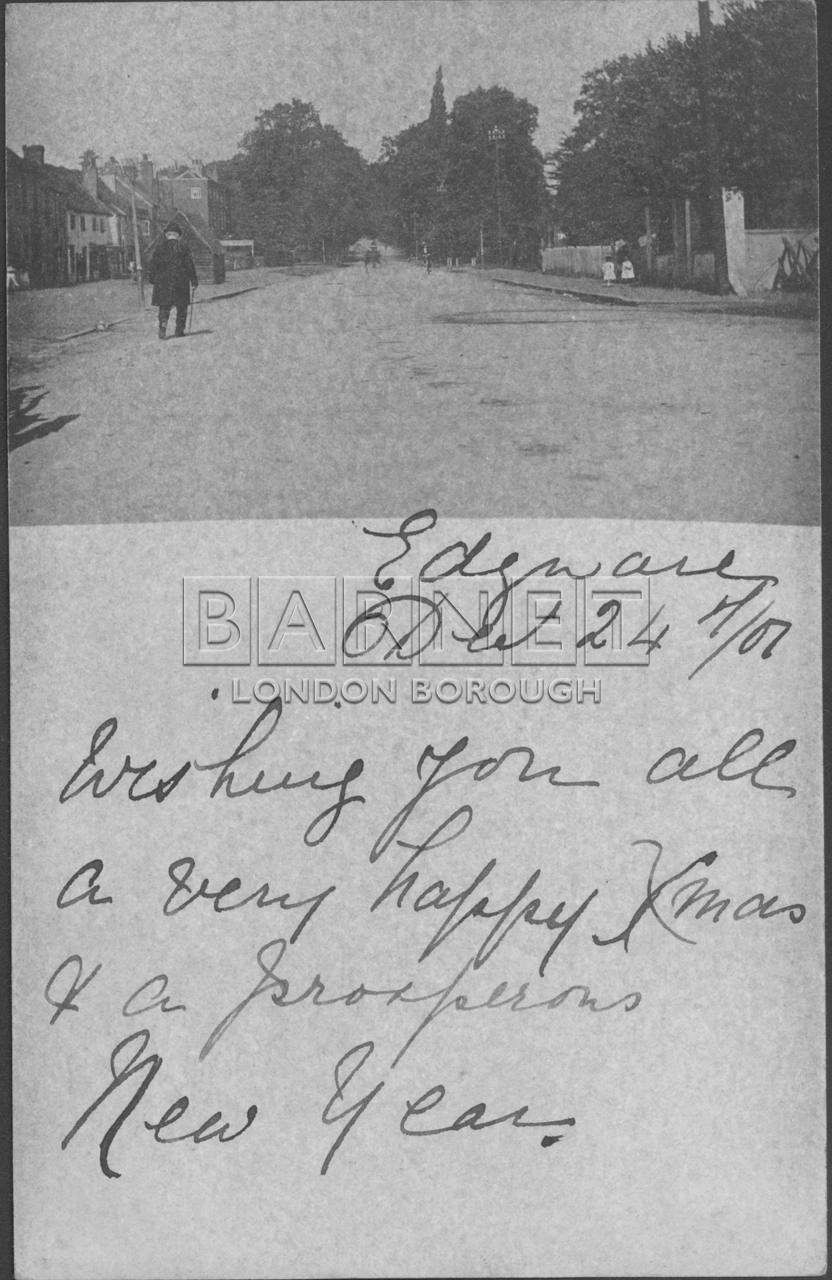 Edgware
Dec 24 /01
BARNET
LONDON BOROUGH
Wishing you all
a very happy Xmas
& a prosperous
New Year.